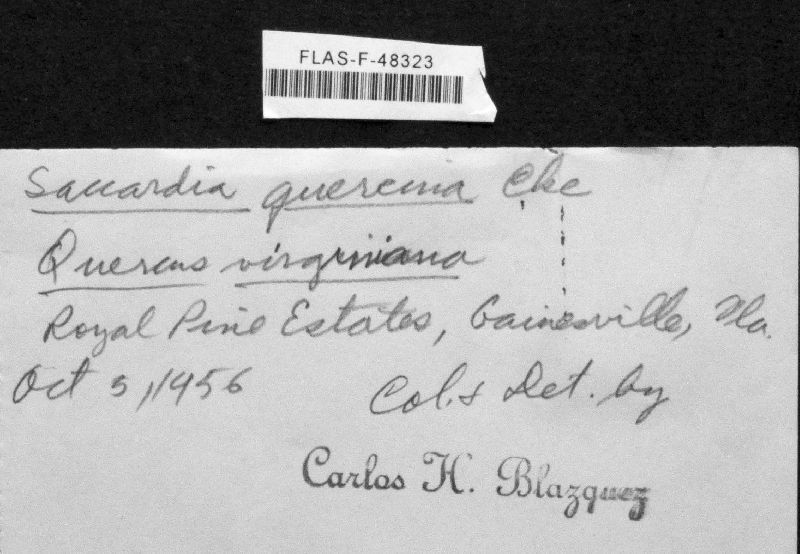 FLAS-F-48323
Saccardia quercina Cke
Quercus virginiana
Royal Pine Estates, Gainesville, Fla.
Oct 5, 1956
Col. & Det. by
Carlos H. Blazquez